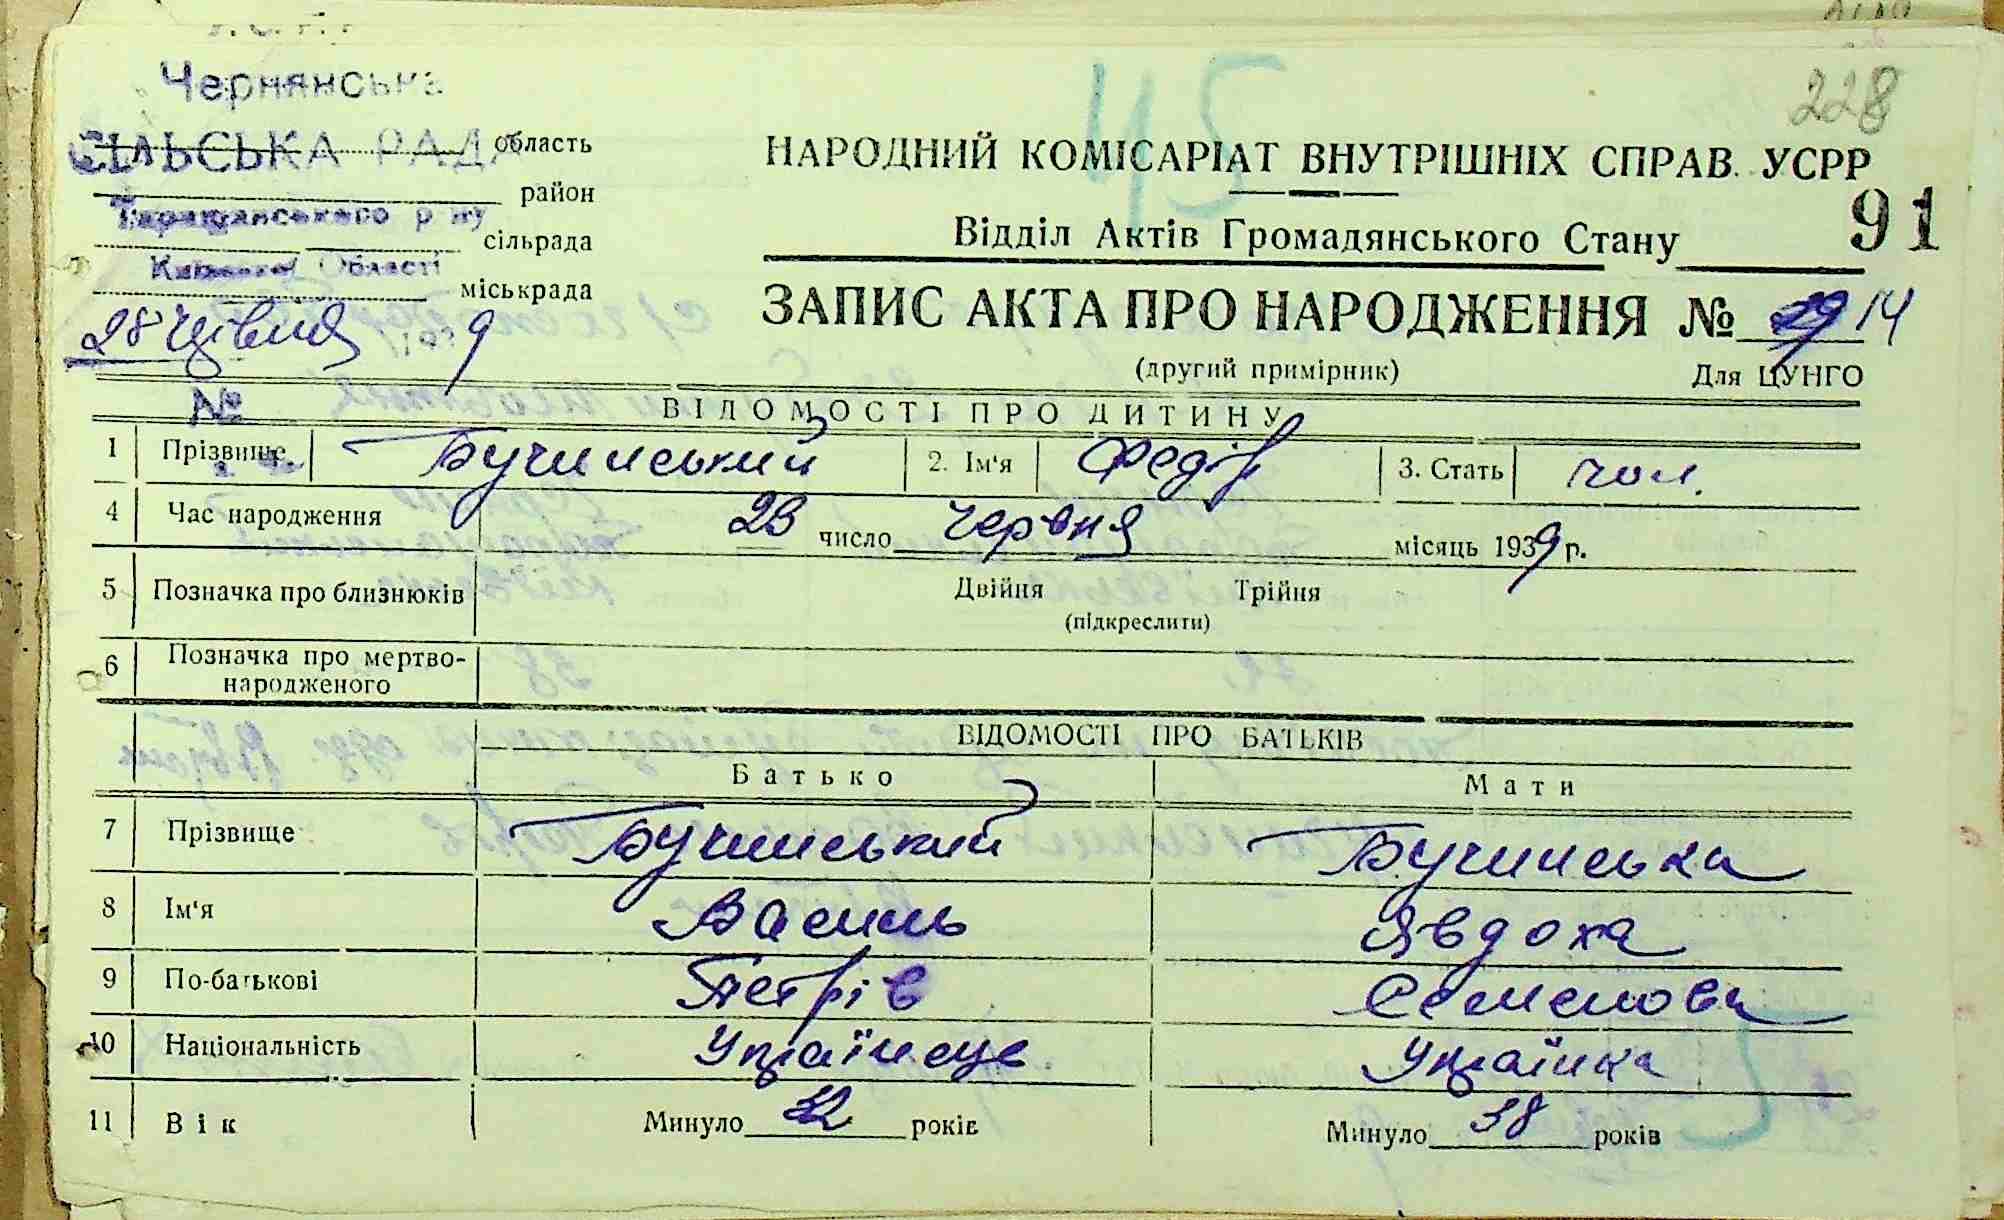 Чернянська
СІЛЬСЬКА РАДА область
район
Таращанського р ну
сільрада
Київської Області
міськрада
28 Червня 193 9
№
228
45
НАРОДНИЙ КОМІСАРІАТ ВНУТРІШНІХ СПРАВ УСРР
91
Відділ Актів Громадянського Стану
ЗАПИС АКТА ПРО НАРОДЖЕННЯ № 29 14
(другий примірник) Для ЦУНГО
ВІДОМОСТІ ПРО ДИТИНУ
1 Прізвище Бучинський 2. Ім'я Федір 3. Стать чол.
4 Час народження 23 число червня місяць 1939 р.
5 Позначка про близнюків Двійня Трійня
(підкреслити)
6 Позначка про мертво-
народженого
ВІДОМОСТІ ПРО БАТЬКІВ
Батько Мати
7 Прізвище Бучинський Бучинська
8 Ім'я Василь Явдоха
9 По-батькові Петрів Семенова
10 Національність Українець Українка
11 Вік Минуло років Минуло 38 років